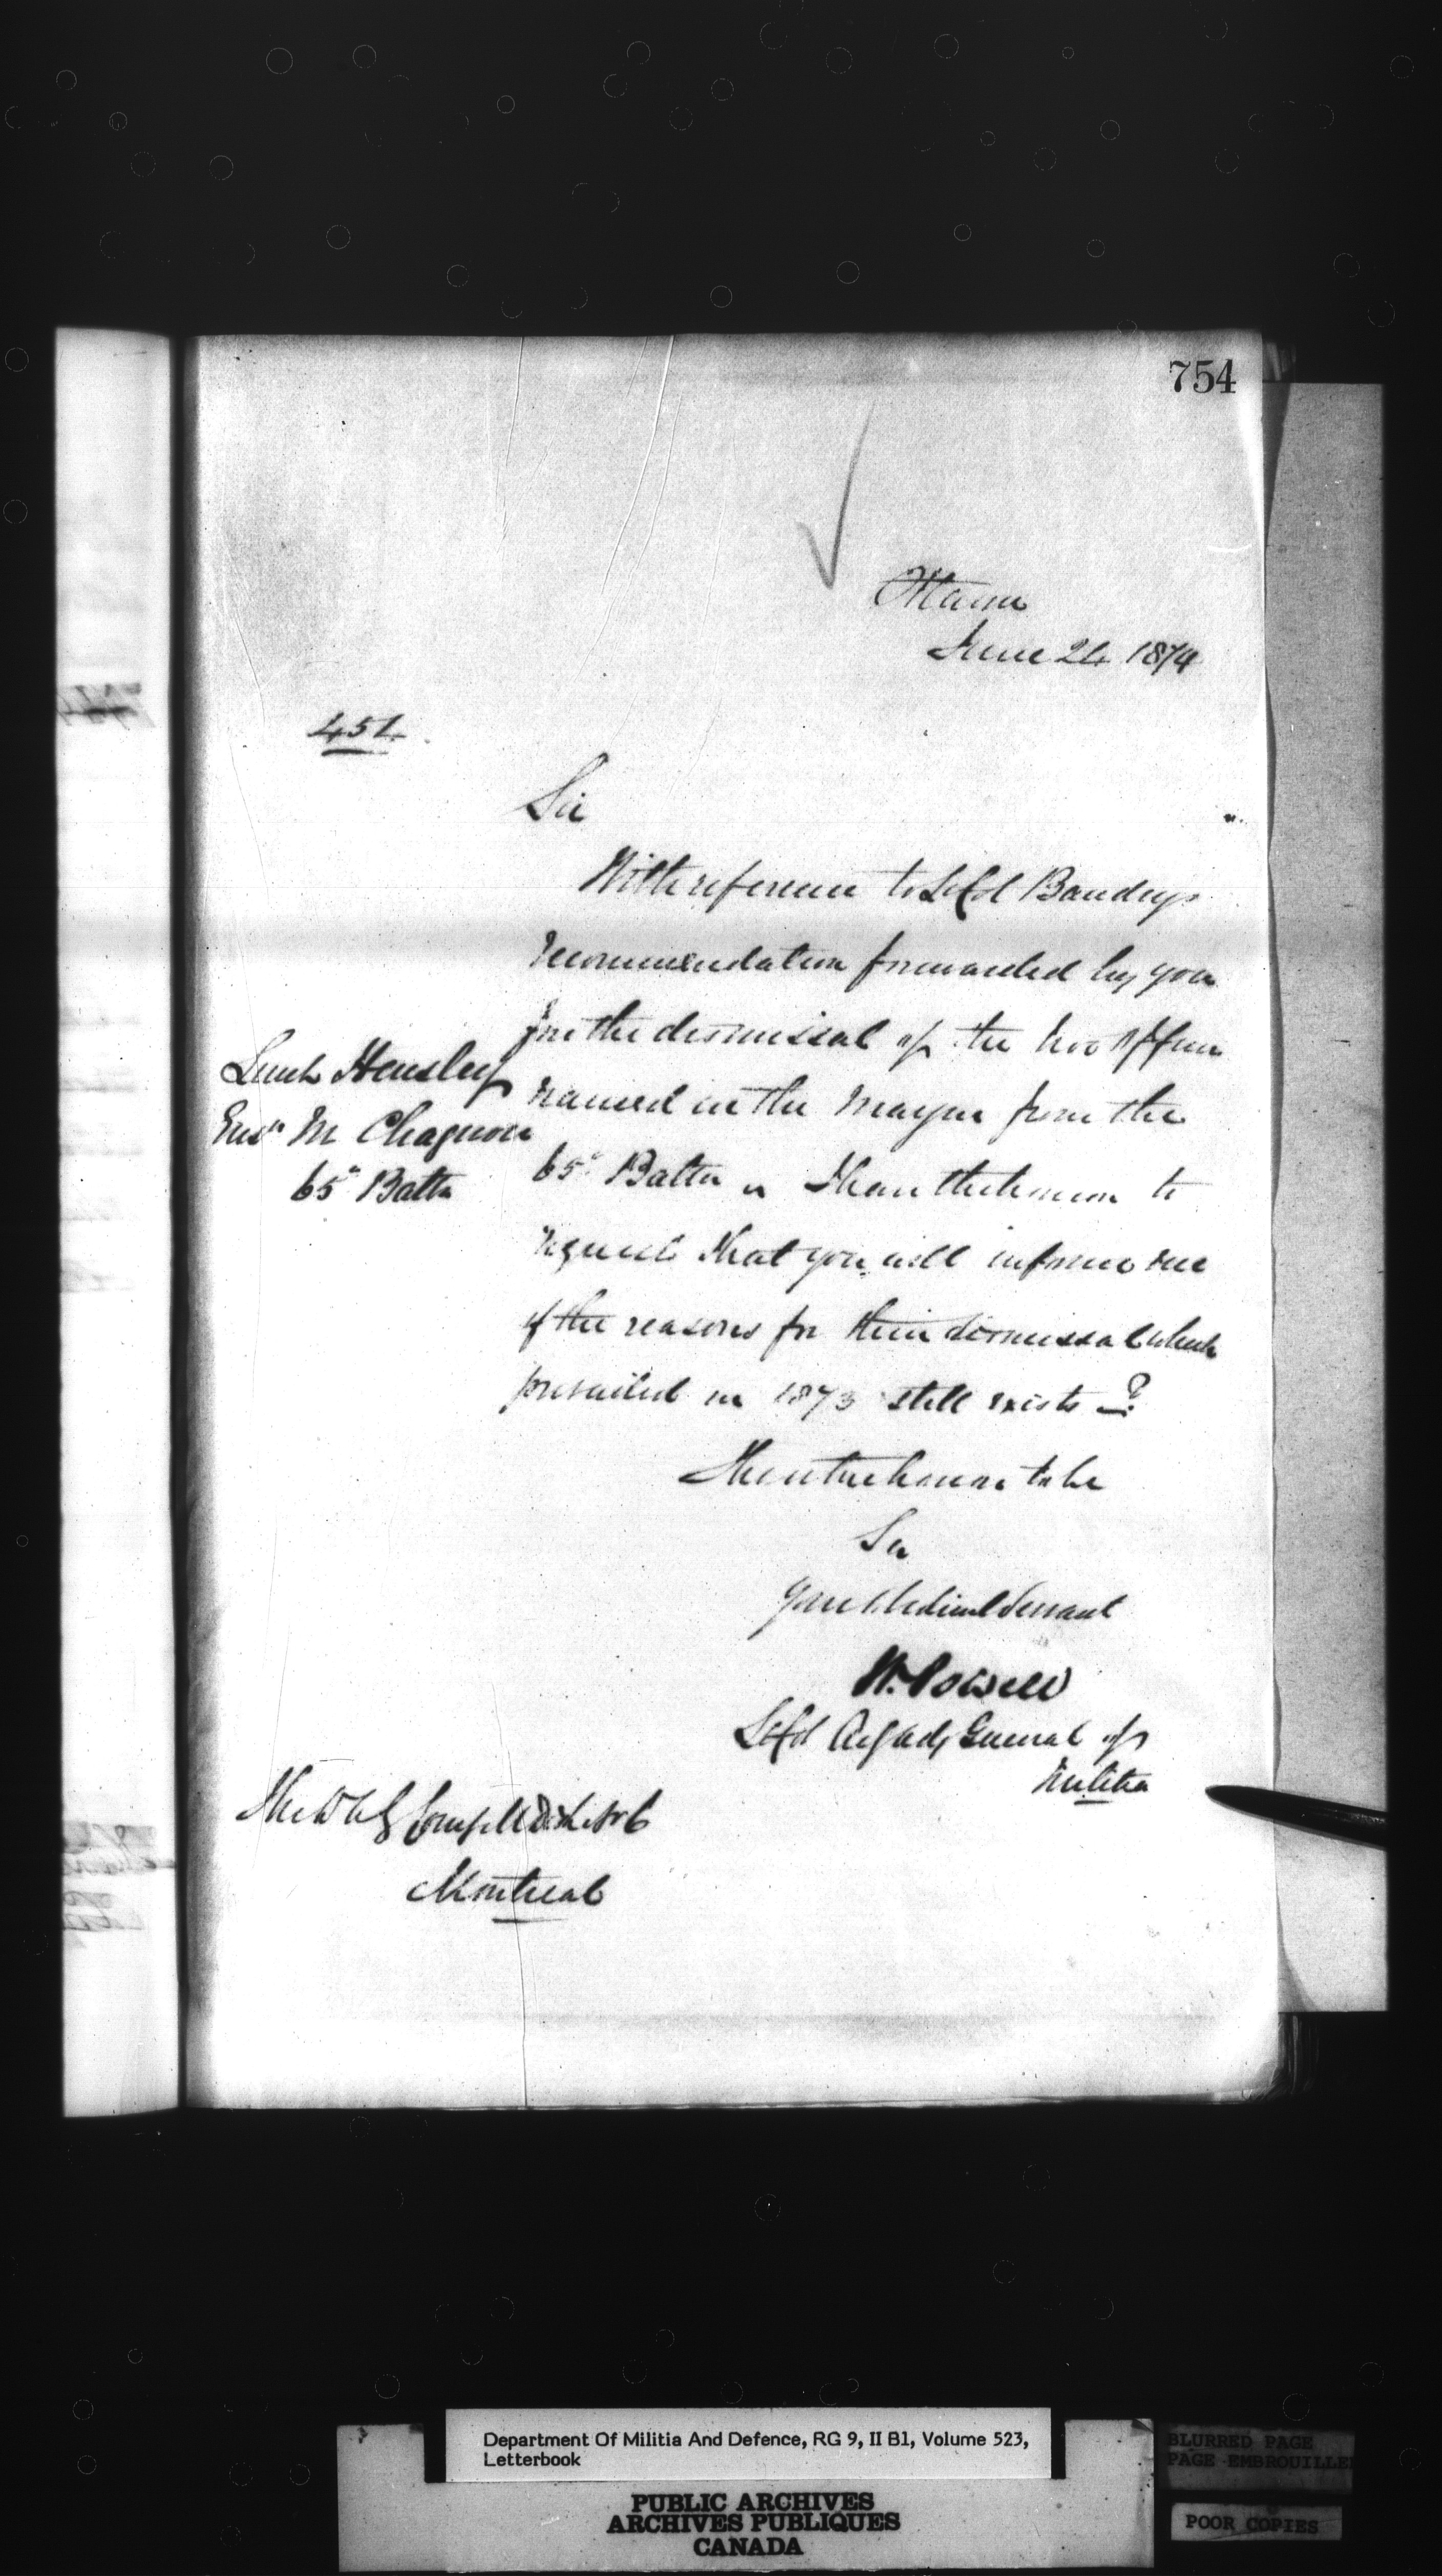 754
Ottawa
June 24 1874
451
Sir
With reference to Lt Col Baudrys
recommendation forwarded by you
for the dismissal of the two Officers
named in the margin from the
65th Battn I have the honor to
request that you will inform me
if the reasons for their dismissal which
prevailed in 1873 still exists ?
Lieut Hensley
Ensn M Chagnon
65th Battn
I have the honor to be
Sir
Your Obedient Servant
W. Powell
Lt Col Adjutant General of
Militia
The DAG Comg Mil Dist No 6
Montreal
Department Of Militia And Defence, RG 9, II B1, Volume 523,
Letterbook
PUBLIC ARCHIVES
ARCHIVES PUBLIQUES
CANADA
BLURRED PAGE
PAGE EMBROUILLE
POOR COPIES